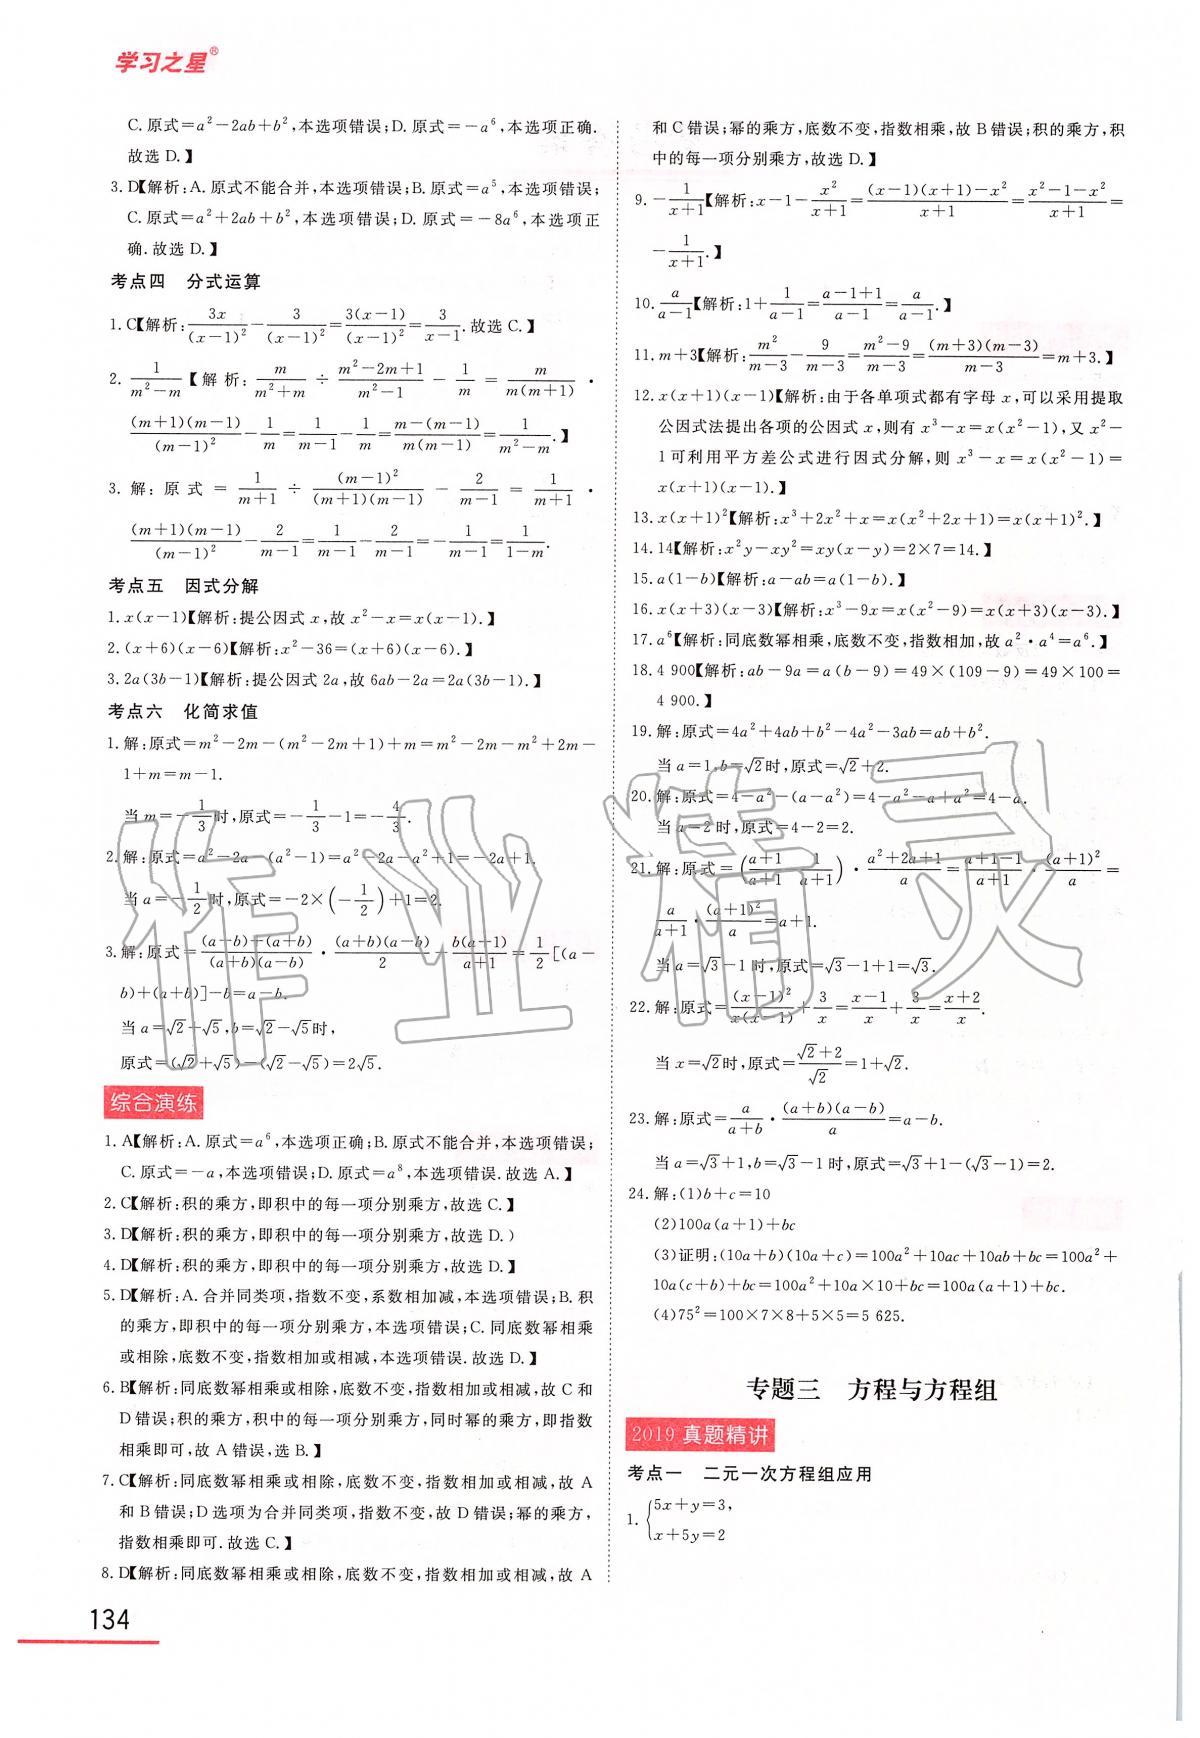 学习之星®
C.原式=a²-2ab+b²,本选项错误;D.原式=-a⁶,本选项正确.
故选 D.】
3.D【解析:A.原式不能合并,本选项错误;B.原式=a⁵,本选项错误;
C.原式=a²+2ab+b²,本选项错误;D.原式=-8a⁶,本选项正
确.故选 D.】
考点四 分式运算
1.C【解析:3x/(x-1)²-3/(x-1)²=3(x-1)/(x-1)²=3/(x-1).故选 C.】
2. 1/(m²-m)【解析:m/(m²+m)÷(m²-2m+1)/(m²-1)-1/m=m/(m(m+1))·
(m+1)(m-1)/(m-1)²-1/m=1/(m-1)-1/m=(m-(m-1))/(m(m-1))=1/(m²-m).】
3.解:原式=1/(m+1)÷(m-1)²/((m+1)(m-1))-2/(m-1)=1/(m+1)·
(m+1)(m-1)/(m-1)²-2/(m-1)=1/(m-1)-2/(m-1)=-1/(m-1)=1/(1-m).
考点五 因式分解
1.x(x-1)【解析:提公因式 x,故 x²-x=x(x-1).】
2.(x+6)(x-6)【解析:x²-36=(x+6)(x-6).】
3.2a(3b-1)【解析:提公因式 2a,故 6ab-2a=2a(3b-1).】
考点六 化简求值
1.解:原式=m²-2m-(m²-2m+1)+m=m²-2m-m²+2m-
1+m=m-1.
当 m=-1/3时,原式=-1/3-1=-4/3.
2.解:原式=a²-2a-(a²-1)=a²-2a-a²+1=-2a+1.
当 a=-1/2时,原式=-2×(-1/2)+1=2.
3.解:原式=((a-b)+(a+b))/((a+b)(a-b))·(a+b)(a-b)/2-b(a+1)/(a+1)=1/2[(a-
b)+(a+b)]-b=a-b.
当 a=√2+√5,b=√2-√5时,
原式=(√2+√5)-(√2-√5)=2√5.
综合演练
1.A【解析:A.原式=a⁶,本选项正确;B.原式不能合并,本选项错误;
C.原式=-a,本选项错误;D.原式=a⁸,本选项错误.故选 A.】
2.C【解析:积的乘方,即积中的每一项分别乘方,故选 C.】
3.D【解析:积的乘方,即积中的每一项分别乘方,故选 D.)
4.D【解析:积的乘方,即积中的每一项分别乘方,故选 D.】
5.D【解析:A.合并同类项,指数不变,系数相加减,本选项错误;B.积
的乘方,即积中的每一项分别乘方,本选项错误;C.同底数幂相乘
或相除,底数不变,指数相加或相减,本选项错误.故选 D.】
6.B【解析:同底数幂相乘或相除,底数不变,指数相加或相减,故 C 和
D 错误;积的乘方,积中的每一项分别乘方,同时幂的乘方,即指数
相乘即可,故 A 错误,选 B.】
7.C【解析:同底数幂相乘或相除,底数不变,指数相加或相减,故 A
和 B 错误;D 选项为合并同类项,指数不变,故 D 错误;幂的乘方,
指数相乘即可.故选 C.】
8.D【解析:同底数幂相乘或相除,底数不变,指数相加或相减,故 A
134
和 C 错误;幂的乘方,底数不变,指数相乘,故 B 错误;积的乘方,积
中的每一项分别乘方,故选 D.】
9.-1/(x+1)【解析:x-1-x²/(x+1)=((x-1)(x+1)-x²)/(x+1)=(x²-1-x²)/(x+1)=
-1/(x+1).】
10.a/(a-1)【解析:1+1/(a-1)=(a-1+1)/(a-1)=a/(a-1).】
11.m+3【解析:m²/(m-3)-9/(m-3)=(m²-9)/(m-3)=(m+3)(m-3)/(m-3)=m+3.】
12.x(x+1)(x-1)【解析:由于各单项式都有字母 x,可以采用提取
公因式法提出各项的公因式 x,则有 x³-x=x(x²-1),又 x²-
1 可利用平方差公式进行因式分解,则 x³-x=x(x²-1)=
x(x+1)(x-1).】
13.x(x+1)²【解析:x³+2x²+x=x(x²+2x+1)=x(x+1)².】
14.14【解析:x²y-xy²=xy(x-y)=2×7=14.】
15.a(1-b)【解析:a-ab=a(1-b).】
16.x(x+3)(x-3)【解析:x³-9x=x(x²-9)=x(x+3)(x-3).】
17.a⁶【解析:同底数幂相乘,底数不变,指数相加,故 a²·a⁴=a⁶.】
18.4 900【解析:ab-9a=a(b-9)=49×(109-9)=49×100=
4 900.】
19.解:原式=4a²+4ab+b²-4a²-3ab=ab+b².
当 a=1,b=√2时,原式=√2+2.
20.解:原式=4-a²-(a-a²)=4-a²-a+a²=4-a.
当 a=2 时,原式=4-2=2.
21.解:原式=((a+1)/(a+1)-1/(a+1))·(a²+2a+1)/a=(a+1-1)/(a+1)·(a+1)²/a=
a/(a+1)·(a+1)²/a=a+1.
当 a=√3-1 时,原式=√3-1+1=√3.
22.解:原式=(x-1)²/(x(x-1))+3/x=(x-1)/x+3/x=(x+2)/x.
当 x=√2时,原式=(√2+2)/√2=1+√2.
23.解:原式=a/(a+b)·(a+b)(a-b)/a=a-b.
当 a=√3+1,b=√3-1 时,原式=√3+1-(√3-1)=2.
24.解:(1)b+c=10
(2)100a(a+1)+bc
(3)证明:(10a+b)(10a+c)=100a²+10ac+10ab+bc=100a²+
10a(c+b)+bc=100a²+10a×10+bc=100a(a+1)+bc.
(4)75²=100×7×8+5×5=5 625.
专题三 方程与方程组
2019 真题精讲
考点一 二元一次方程组应用
1. {5x+y=3,
x+5y=2
作业精灵